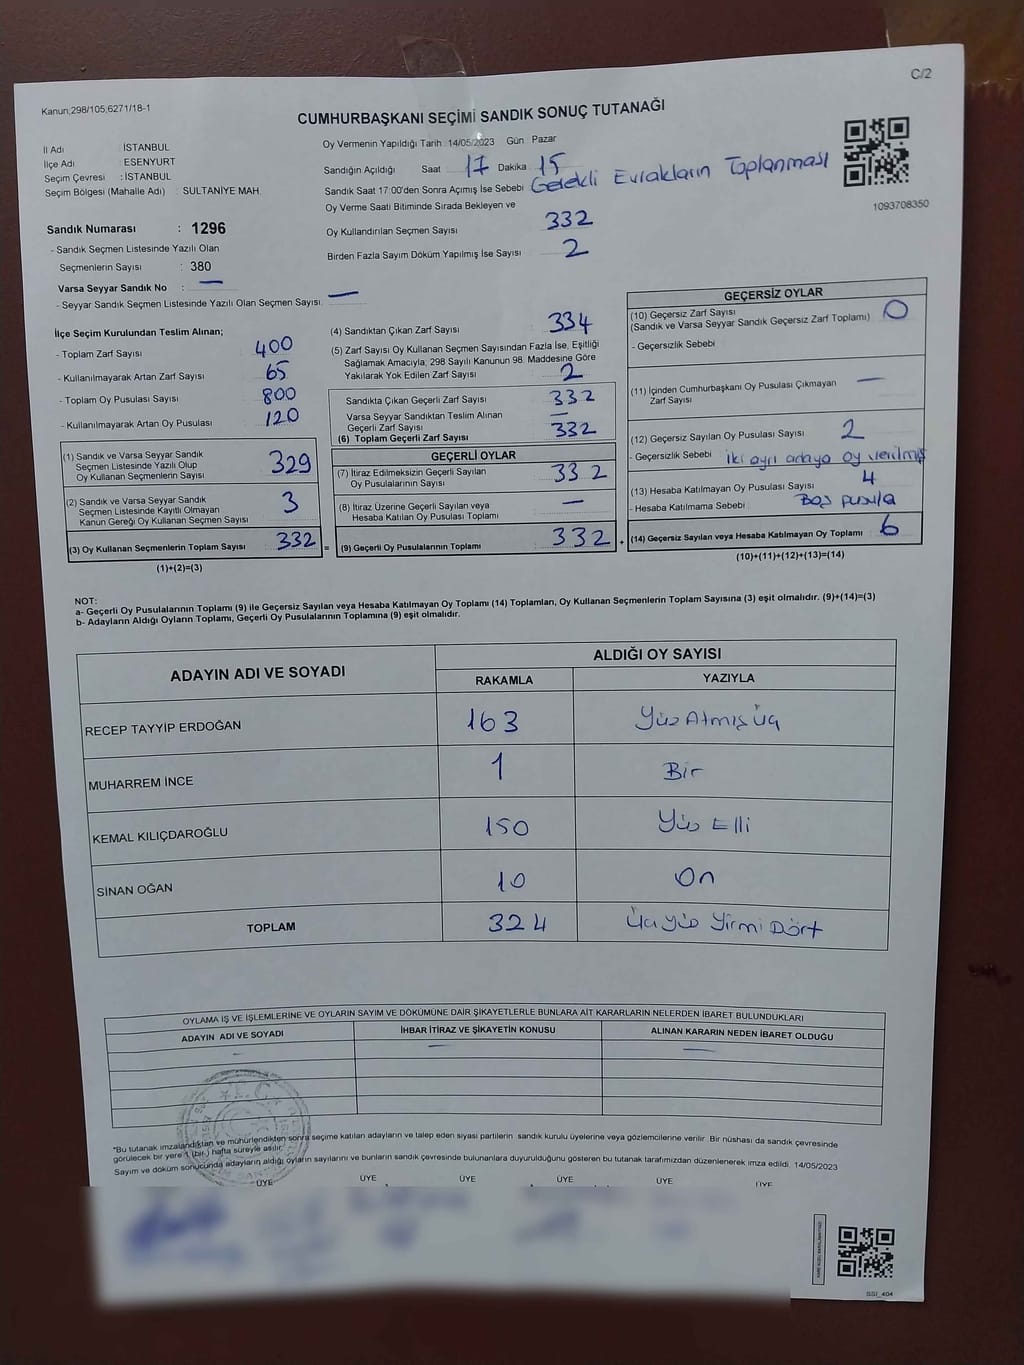 C/2
Kanun;298/105,6271/18-1
CUMHURBAŞKANI SEÇİMİ SANDIK SONUÇ TUTANAĞI
İl Adı : İSTANBUL
İlçe Adı : ESENYURT
Seçim Çevresi : İSTANBUL
Seçim Bölgesi (Mahalle Adı) : SULTANİYE MAH.
Sandık Numarası : 1296
- Sandık Seçmen Listesinde Yazılı Olan
Seçmenlerin Sayısı : 380
Varsa Seyyar Sandık No : —
- Seyyar Sandık Seçmen Listesinde Yazılı Olan Seçmen Sayısı: —
Oy Vermenin Yapıldığı Tarih 14/05/2023 Gün Pazar
Sandığın Açıldığı Saat 17 Dakika 15
Sandık Saat 17:00'den Sonra Açımış İse Sebebi Gerekli Evrakların Toplanması
Oy Verme Saati Bitiminde Sırada Bekleyen ve
Oy Kullandırılan Seçmen Sayısı 332
Birden Fazla Sayım Döküm Yapılmış İse Sayısı 2
1093708350
İlçe Seçim Kurulundan Teslim Alınan;
- Toplam Zarf Sayısı 400
- Kullanılmayarak Artan Zarf Sayısı 65
- Toplam Oy Pusulası Sayısı 800
- Kullanılmayarak Artan Oy Pusulası 120
(1) Sandık ve Varsa Seyyar Sandık
Seçmen Listesinde Yazılı Olup
Oy Kullanan Seçmenlerin Sayısı 329
(2) Sandık ve Varsa Seyyar Sandık
Seçmen Listesinde Kayıtlı Olmayan
Kanun Gereği Oy Kullanan Seçmen Sayısı 3
(3) Oy Kullanan Seçmenlerin Toplam Sayısı 332 =
(1)+(2)=(3)
(4) Sandıktan Çıkan Zarf Sayısı 334
(5) Zarf Sayısı Oy Kullanan Seçmen Sayısından Fazla İse, Eşitliği
Sağlamak Amacıyla, 298 Sayılı Kanunun 98. Maddesine Göre
Yakılarak Yok Edilen Zarf Sayısı 2
Sandıkta Çıkan Geçerli Zarf Sayısı 332
Varsa Seyyar Sandıktan Teslim Alınan
Geçerli Zarf Sayısı —
(6) Toplam Geçerli Zarf Sayısı 332
GEÇERLİ OYLAR
(7) İtiraz Edilmeksizin Geçerli Sayılan
Oy Pusulalarının Sayısı 332
(8) İtiraz Üzerine Geçerli Sayılan veya
Hesaba Katılan Oy Pusulası Toplamı —
(9) Geçerli Oy Pusulalarının Toplamı 332 +
GEÇERSİZ OYLAR
(10) Geçersiz Zarf Sayısı
(Sandık ve Varsa Seyyar Sandık Geçersiz Zarf Toplamı) 0
- Geçersizlik Sebebi
(11) İçinden Cumhurbaşkanı Oy Pusulası Çıkmayan
Zarf Sayısı —
(12) Geçersiz Sayılan Oy Pusulası Sayısı 2
- Geçersizlik Sebebi İki ayrı adaya oy verilmiş
(13) Hesaba Katılmayan Oy Pusulası Sayısı 4
- Hesaba Katılmama Sebebi Boş pusula
(14) Geçersiz Sayılan veya Hesaba Katılmayan Oy Toplamı 6
(10)+(11)+(12)+(13)=(14)
NOT:
a- Geçerli Oy Pusulalarının Toplamı (9) ile Geçersiz Sayılan veya Hesaba Katılmayan Oy Toplamı (14) Toplamları, Oy Kullanan Seçmenlerin Toplam Sayısına (3) eşit olmalıdır. (9)+(14)=(3)
b- Adayların Aldığı Oyların Toplamı, Geçerli Oy Pusulalarının Toplamına (9) eşit olmalıdır.
ADAYIN ADI VE SOYADI ALDIĞI OY SAYISI
RAKAMLA YAZIYLA
RECEP TAYYİP ERDOĞAN 163 Yüz Atmış Üç
MUHARREM İNCE 1 Bir
KEMAL KILIÇDAROĞLU 150 Yüz Elli
SİNAN OĞAN 10 On
TOPLAM 324 Üç Yüz Yirmi Dört
OYLAMA İŞ VE İŞLEMLERİNE VE OYLARIN SAYIM VE DÖKÜMÜNE DAİR ŞİKAYETLERLE BUNLARA AİT KARARLARIN NELERDEN İBARET BULUNDUKLARI
ADAYIN ADI VE SOYADI İHBAR İTİRAZ VE ŞİKAYETİN KONUSU ALINAN KARARIN NEDEN İBARET OLDUĞU
— — —
T.C.
*Bu tutanak imzalandıktan ve mühürlendikten sonra seçime katılan adayların ve talep eden siyasi partilerin sandık kurulu üyelerine veya gözlemcilerine verilir. Bir nüshası da sandık çevresinde
görülecek bir yere 1 (bir) hafta süreyle asılır.
Sayım ve döküm sonucunda adayların aldığı oyların sayılarını ve bunların sandık çevresinde bulunanlara duyurulduğunu gösteren bu tutanak tarafımızdan düzenlenerek imza edildi. 14/05/2023
ÜYE ÜYE ÜYE ÜYE ÜYE ÜYE
SSİ_404